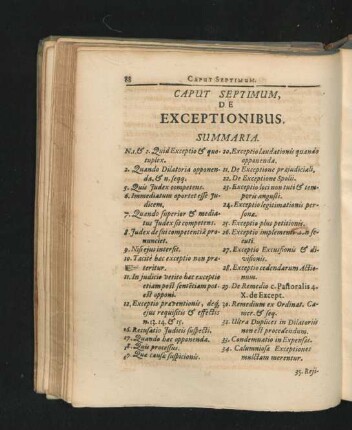 88 CAPUT SEPTIMUM.
CAPUT SEPTIMUM,
DE
EXCEPTIONIBUS.
SUMMARIA.
N.1.& 2. Quid Exceptio & quo-
tuplex.
2. Quando Dilatoria opponen-
da, & n. seqq.
5. Quis Judex competens.
6. Immediatum oportet esse Ju-
dicem,
7. Quando superior & media-
tus Judex se competens.
8. Judex de sei competentiâ pro-
nunciet.
9. Nisi ejus intersit.
10. Tacitè hac exceptio non præ-
teritur.
11. In judicio petito hac exceptio
etiam post sententiam pot-
est opponi.
12. Exceptio præventionis, deq;
ejus requisitis & effectis
n. 13. 14. & 15.
16. Recusatio Judicis suspecti.
17. Quando hac opponenda.
18. Quis processus.
Qua causa suspicionis.
20. Exceptio laudationis quando
opponenda.
21. De Exceptione præjudiciali,
22. De Exceptione Spolii.
23. Exceptio loci non tuti & tem-
poris angusti.
24. Exceptio legitimationis per-
sonæ.
25. Exceptio plus petitionis.
26. Exceptio implementi non se-
cuti.
27. Exceptio Excussionis & di-
visionis.
28. Exceptio cedendarum Actio-
num.
29. De Remedio c. Pastoralis 4.
X. de Except.
30. Remedium ex Ordinat. Ca-
mer. & seq.
32. Ultra Duplices in Dilatoriis
non est procedendum.
33. Condemnatio in Expensas.
34. Calumniosæ Exceptiones
mulctam merentur.
35. Reji-